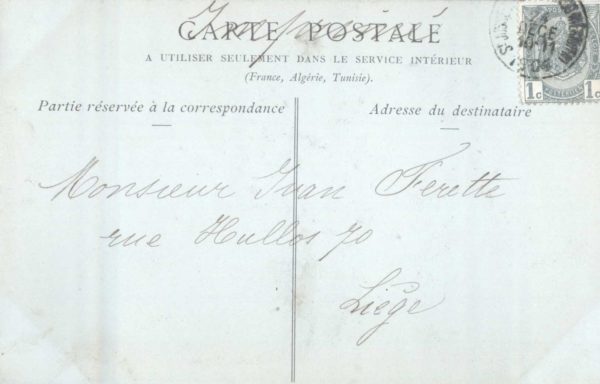 CARTE POSTALE
Imprimé
A UTILISER SEULEMENT DANS LE SERVICE INTÉRIEUR
(France, Algérie, Tunisie).
Partie réservée à la correspondance
Adresse du destinataire
DECE
10-11
1904
1c 1c
Monsieur Ivan Ferette
rue Hullos 70
Liège